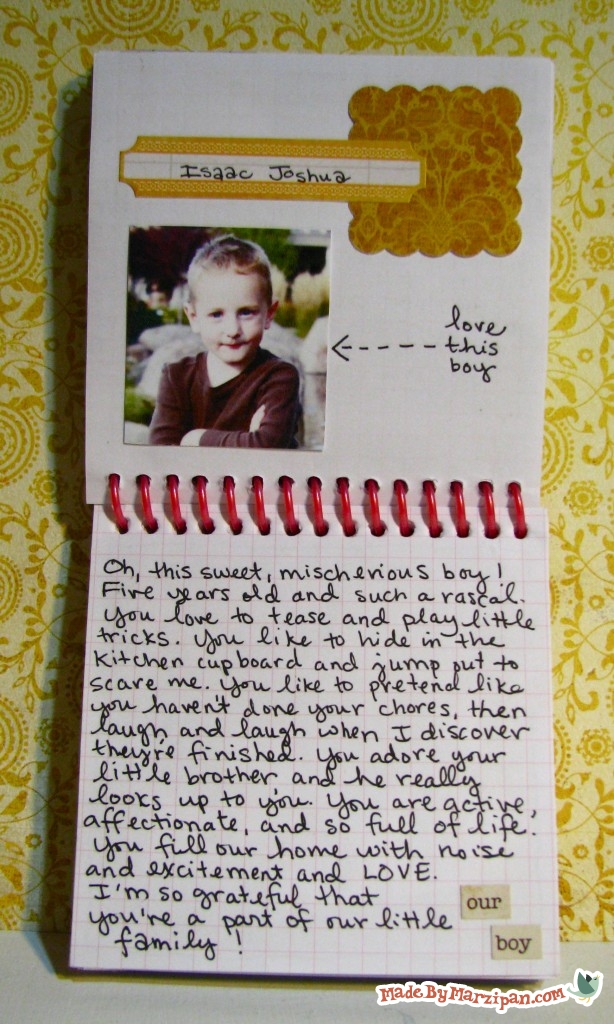 Isaac Joshua
love
this
boy
Oh, this sweet, mischevious boy!
Five years old and such a rascal.
You love to tease and play little
tricks. You like to hide in the
kitchen cupboard and jump out to
scare me. You like to pretend like
you haven't done your chores, then
laugh and laugh when I discover
they're finished. You adore your
little brother and he really
looks up to you. You are active,
affectionate, and so full of life.
You fill our home with noise
and excitement and LOVE.
I'm so grateful that
you're a part of our little
family!
our
boy
MadeByMarzipan.com